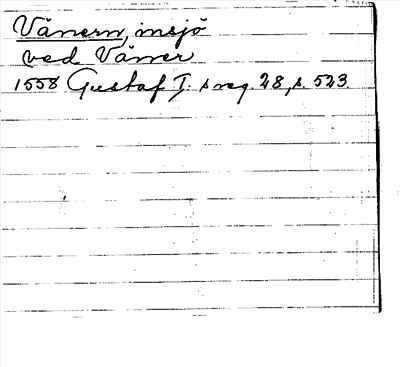 Vänern, insjö
ved Väner
1558 Gustaf I:s reg. 28, s. 523.